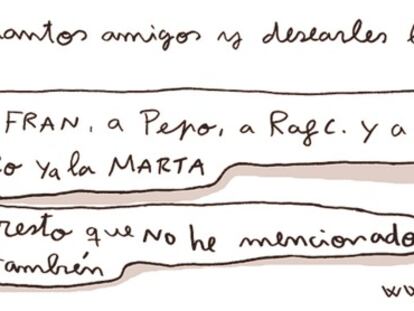 amigos y desearles
FRAN, a Pepo, a Rafc. y a
o ya la MARTA
resto que NO he mencionado
también